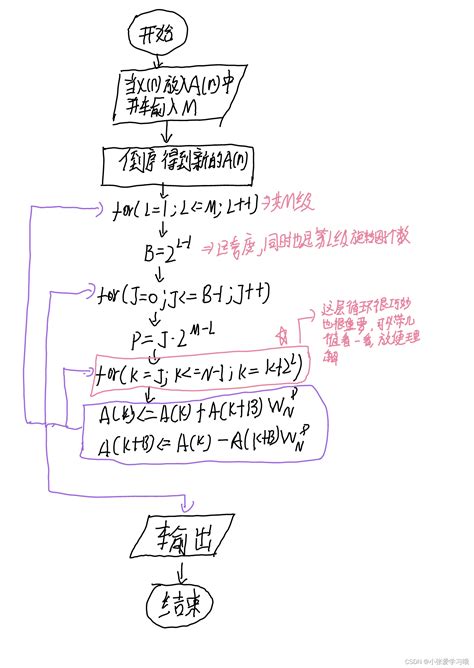 开始
当X(n)放入A(n)中
并车俞入M
倒序得到新的A(n)
for(L=1;L<=M;L++)
→共M级
B=2^(L-1)
→过宽度,同时也是第L级旋转因子个数
for(J=0;J<=B-1;J++)
P=J·2^(M-L)
这层循环很巧妙
也很重要,可以带几
值看一看,放便理
解
for(K=J;K<=N-1;K=K+2^L)
A(K)<=A(K)+A(K+B)W_N^P
A(K+B)<=A(K)-A(K+B)W_N^P
输出
结束
CSDN @小张爱学习哦